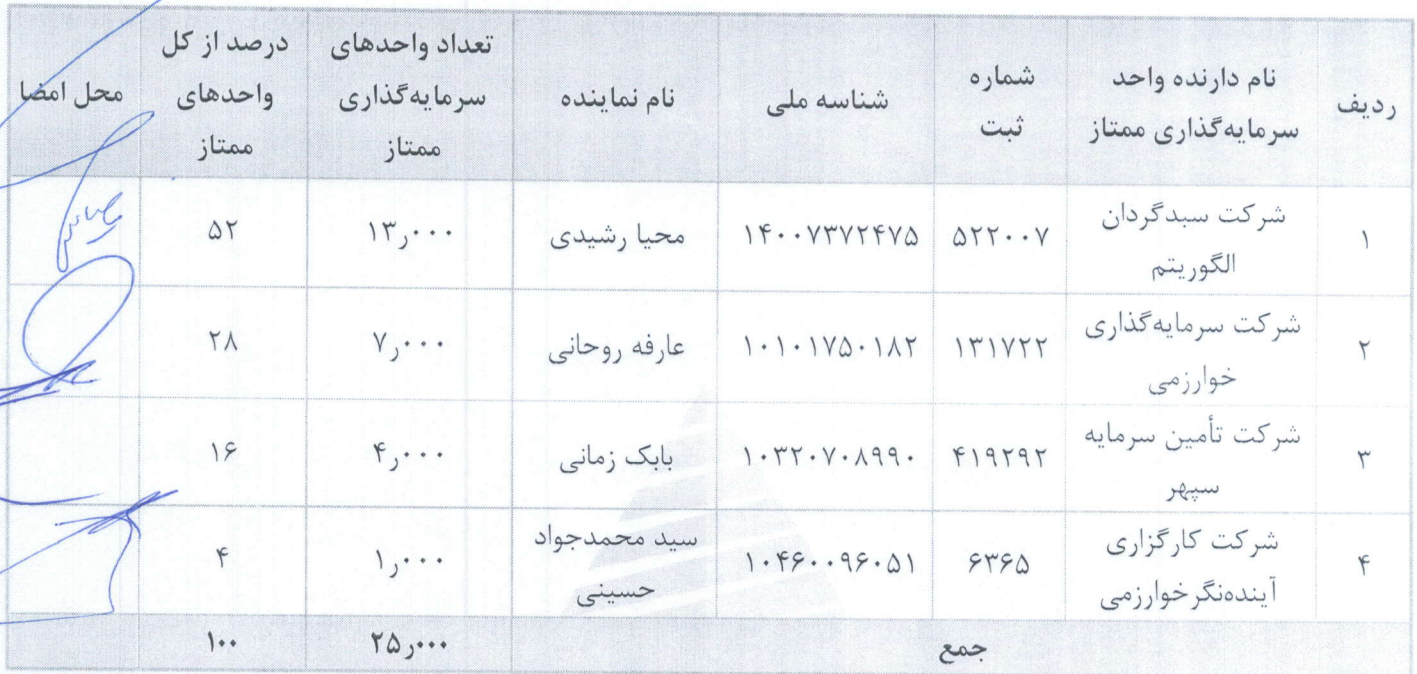 ردیف نام دارنده واحد سرمایه‌گذاری ممتاز شماره ثبت شناسه ملی نام نماینده تعداد واحدهای سرمایه‌گذاری ممتاز درصد از کل واحدهای ممتاز محل امضا
۱ شرکت سبدگردان الگوریتم ۵۲۲۰۰۷ ۱۴۰۰۷۳۷۲۴۷۵ محیا رشیدی ۱۳٫۰۰۰ ۵۲
۲ شرکت سرمایه‌گذاری خوارزمی ۱۳۱۷۲۲ ۱۰۱۰۱۷۵۰۱۸۲ عارفه روحانی ۷٫۰۰۰ ۲۸
۳ شرکت تأمین سرمایه سپهر ۴۱۹۲۹۲ ۱۰۳۲۰۷۰۸۹۹۰ بابک زمانی ۴٫۰۰۰ ۱۶
۴ شرکت کارگزاری آینده‌نگر خوارزمی ۶۳۶۵ ۱۰۴۶۰۰۹۶۰۵۱ سید محمدجواد حسینی ۱٫۰۰۰ ۴
جمع ۲۵٫۰۰۰ ۱۰۰